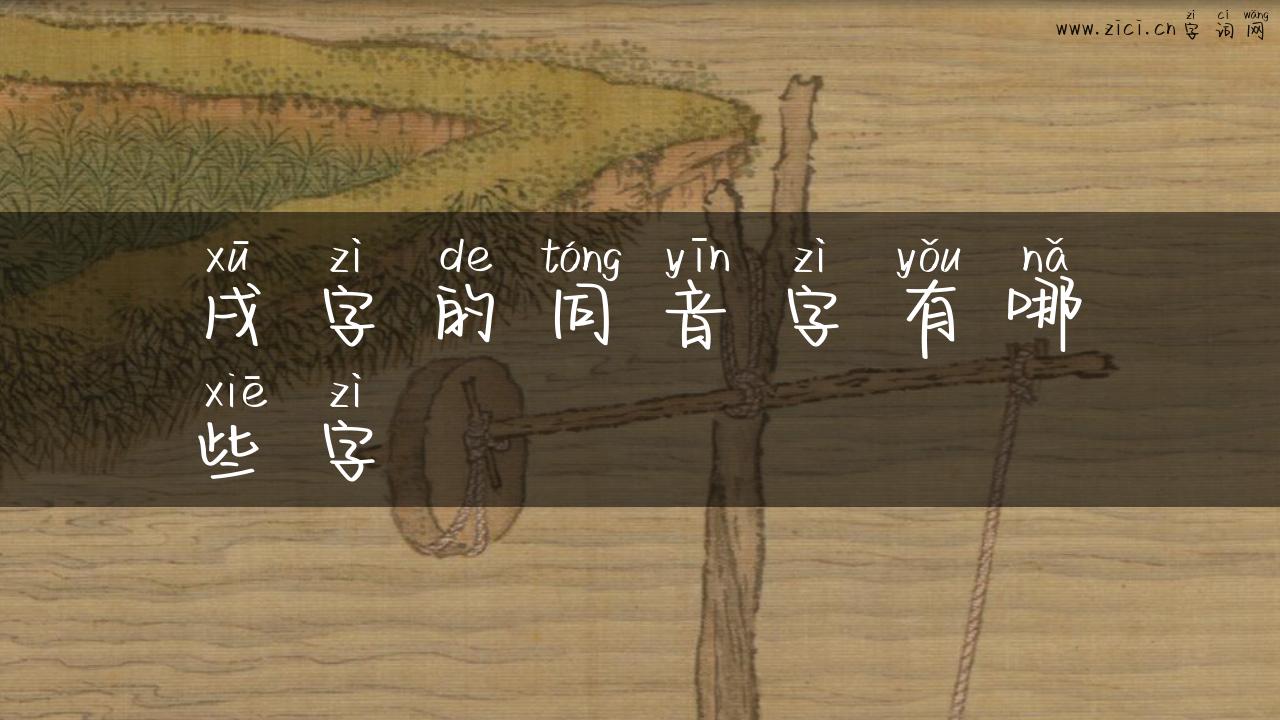 zì cí wǎng
www.zici.cn字词网
xū zì de tóng yīn zì yǒu nǎ
戌字的同音字有哪
xiē zì
些字